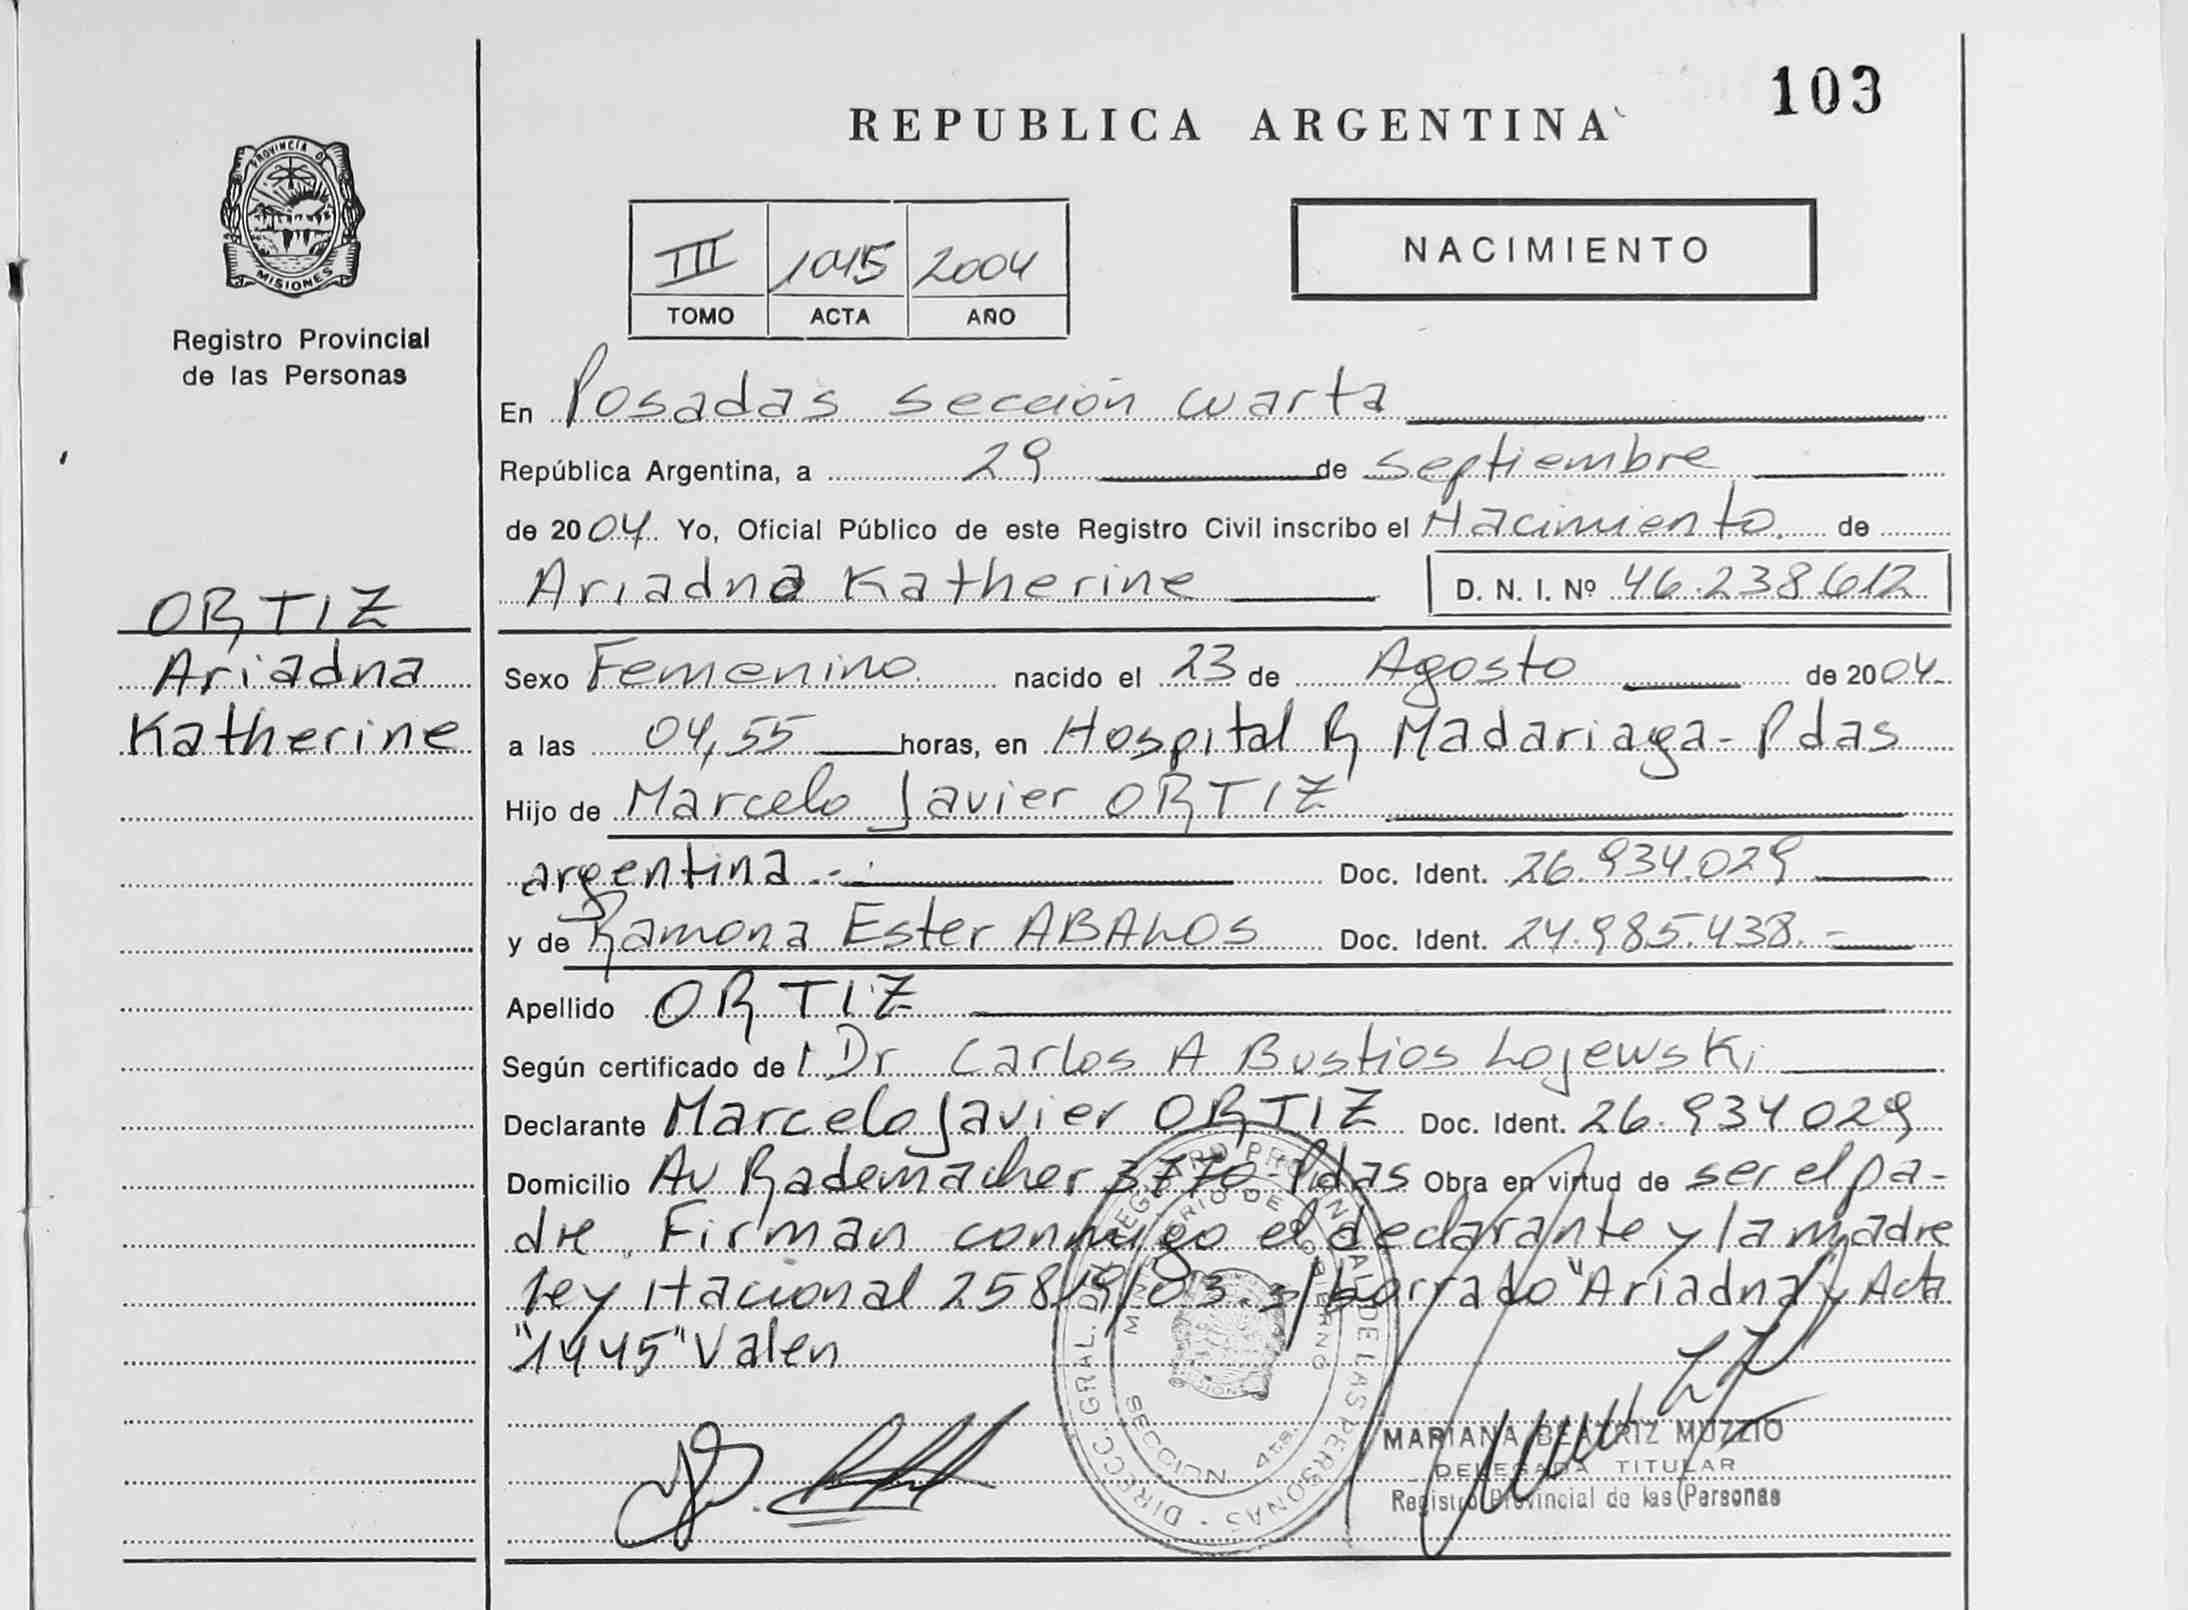 103
REPUBLICA ARGENTINA
PROVINCIA DE
MISIONES
Registro Provincial
de las Personas
III 2004
TOMO ACTA AÑO
NACIMIENTO
En Posadas sección cuarta
República Argentina, a 29 de septiembre
de 2004. Yo, Oficial Público de este Registro Civil inscribo el Nacimiento. de
Ariadna Katherine D. N. I. Nº 46.238.612
ORTIZ
Ariadna
Katherine
Sexo Femenino. nacido el 23 de Agosto de 2004
a las 04,55 horas, en Hospital R Madariaga - Pdas
Hijo de Marcelo Javier ORTIZ
argentina.- Doc. Ident. 26.934.029
y de Ramona Ester ABALOS Doc. Ident. 24.985.438.-
Apellido ORTIZ
Según certificado de l Dr Carlos A Bustios Lojewski
Declarante Marcelo Javier ORTIZ Doc. Ident. 26.934029
Domicilio Av Rademacher 3770 - Pdas Obra en virtud de ser el pa-
dre. Firman conmigo el declarante y la madre
Ley Nacional 25819/03. s/borrado "Ariadna y Acta
"1445" Valen
DIRECC. GRAL. DEL REGISTRO PROVINCIAL DE LAS PERSONAS
MINISTERIO DE GOBIERNO
SECCION 4ta.
MARIANA BEATRIZ MUZZIO
DELEGADA TITULAR
Registro Provincial de las Personas